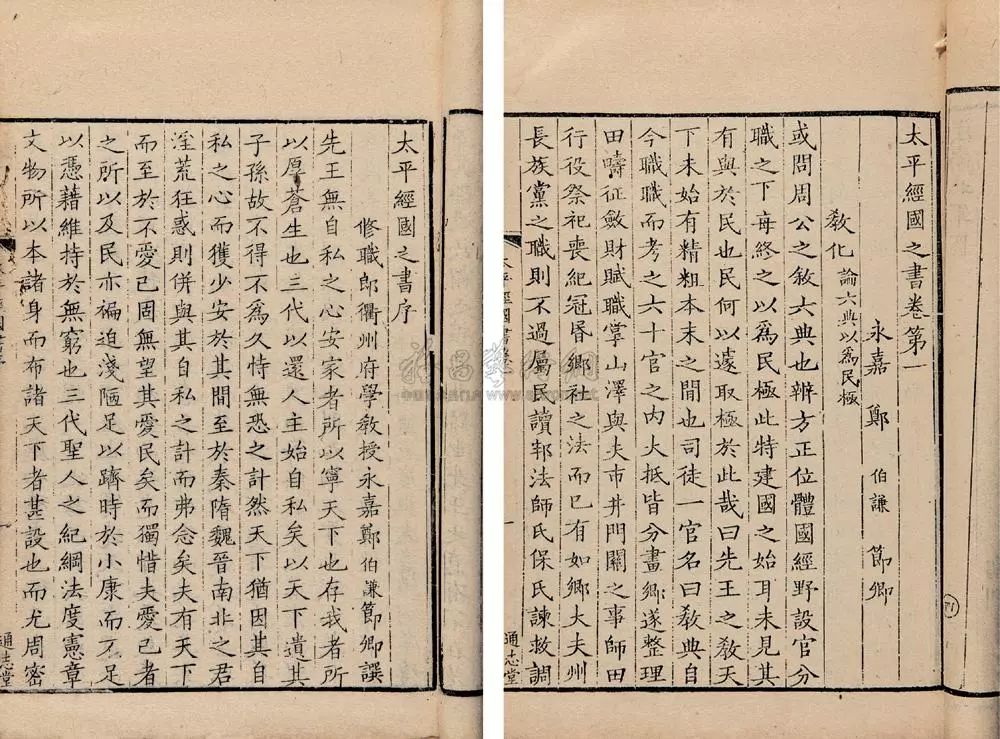 太平經國之書卷第一
永嘉 鄭 伯謙 節卿
敎化 論六典以爲民極
或問周公之敘六典也辨方正位體國經野設官分
職之下每終之以爲民極此特建國之始耳未見其
有與於民也民何以遠取極於此哉曰先王之敎天
下未始有精粗本末之間也司徒一官名曰敎典自
今職職而考之六十官之內大抵皆分畫鄉遂整理
田疇征斂財賦職掌山澤與夫市井門關之事師田
行役祭祀喪紀冠昬鄉社之法而已有如鄉大夫州
長族黨之職則不過屬民讀邦法師氏保氏諫救調
通志堂
太平經國之書序
修職郎衢州府學教授永嘉鄭伯謙節卿譔
先王無自私之心安家者所以寧天下也存我者所
以厚蒼生也三代以還人主始自私矣以天下遺其
子孫故不得不爲久特無恐之計然天下猶因其自
私之心而獲少安於其間至於秦隋魏晉南北之君
淫荒狂惑則併與其自私之計而弗念矣夫有天下
而至於不愛己固無望其愛民矣而獨惜夫愛己者
之所以及民亦褊迫淺陋足以躋時於小康而不足
以憑藉維持於無窮也三代聖人之紀綱法度憲章
文物所以本諸身而布諸天下者甚設也而尤周密
通志堂